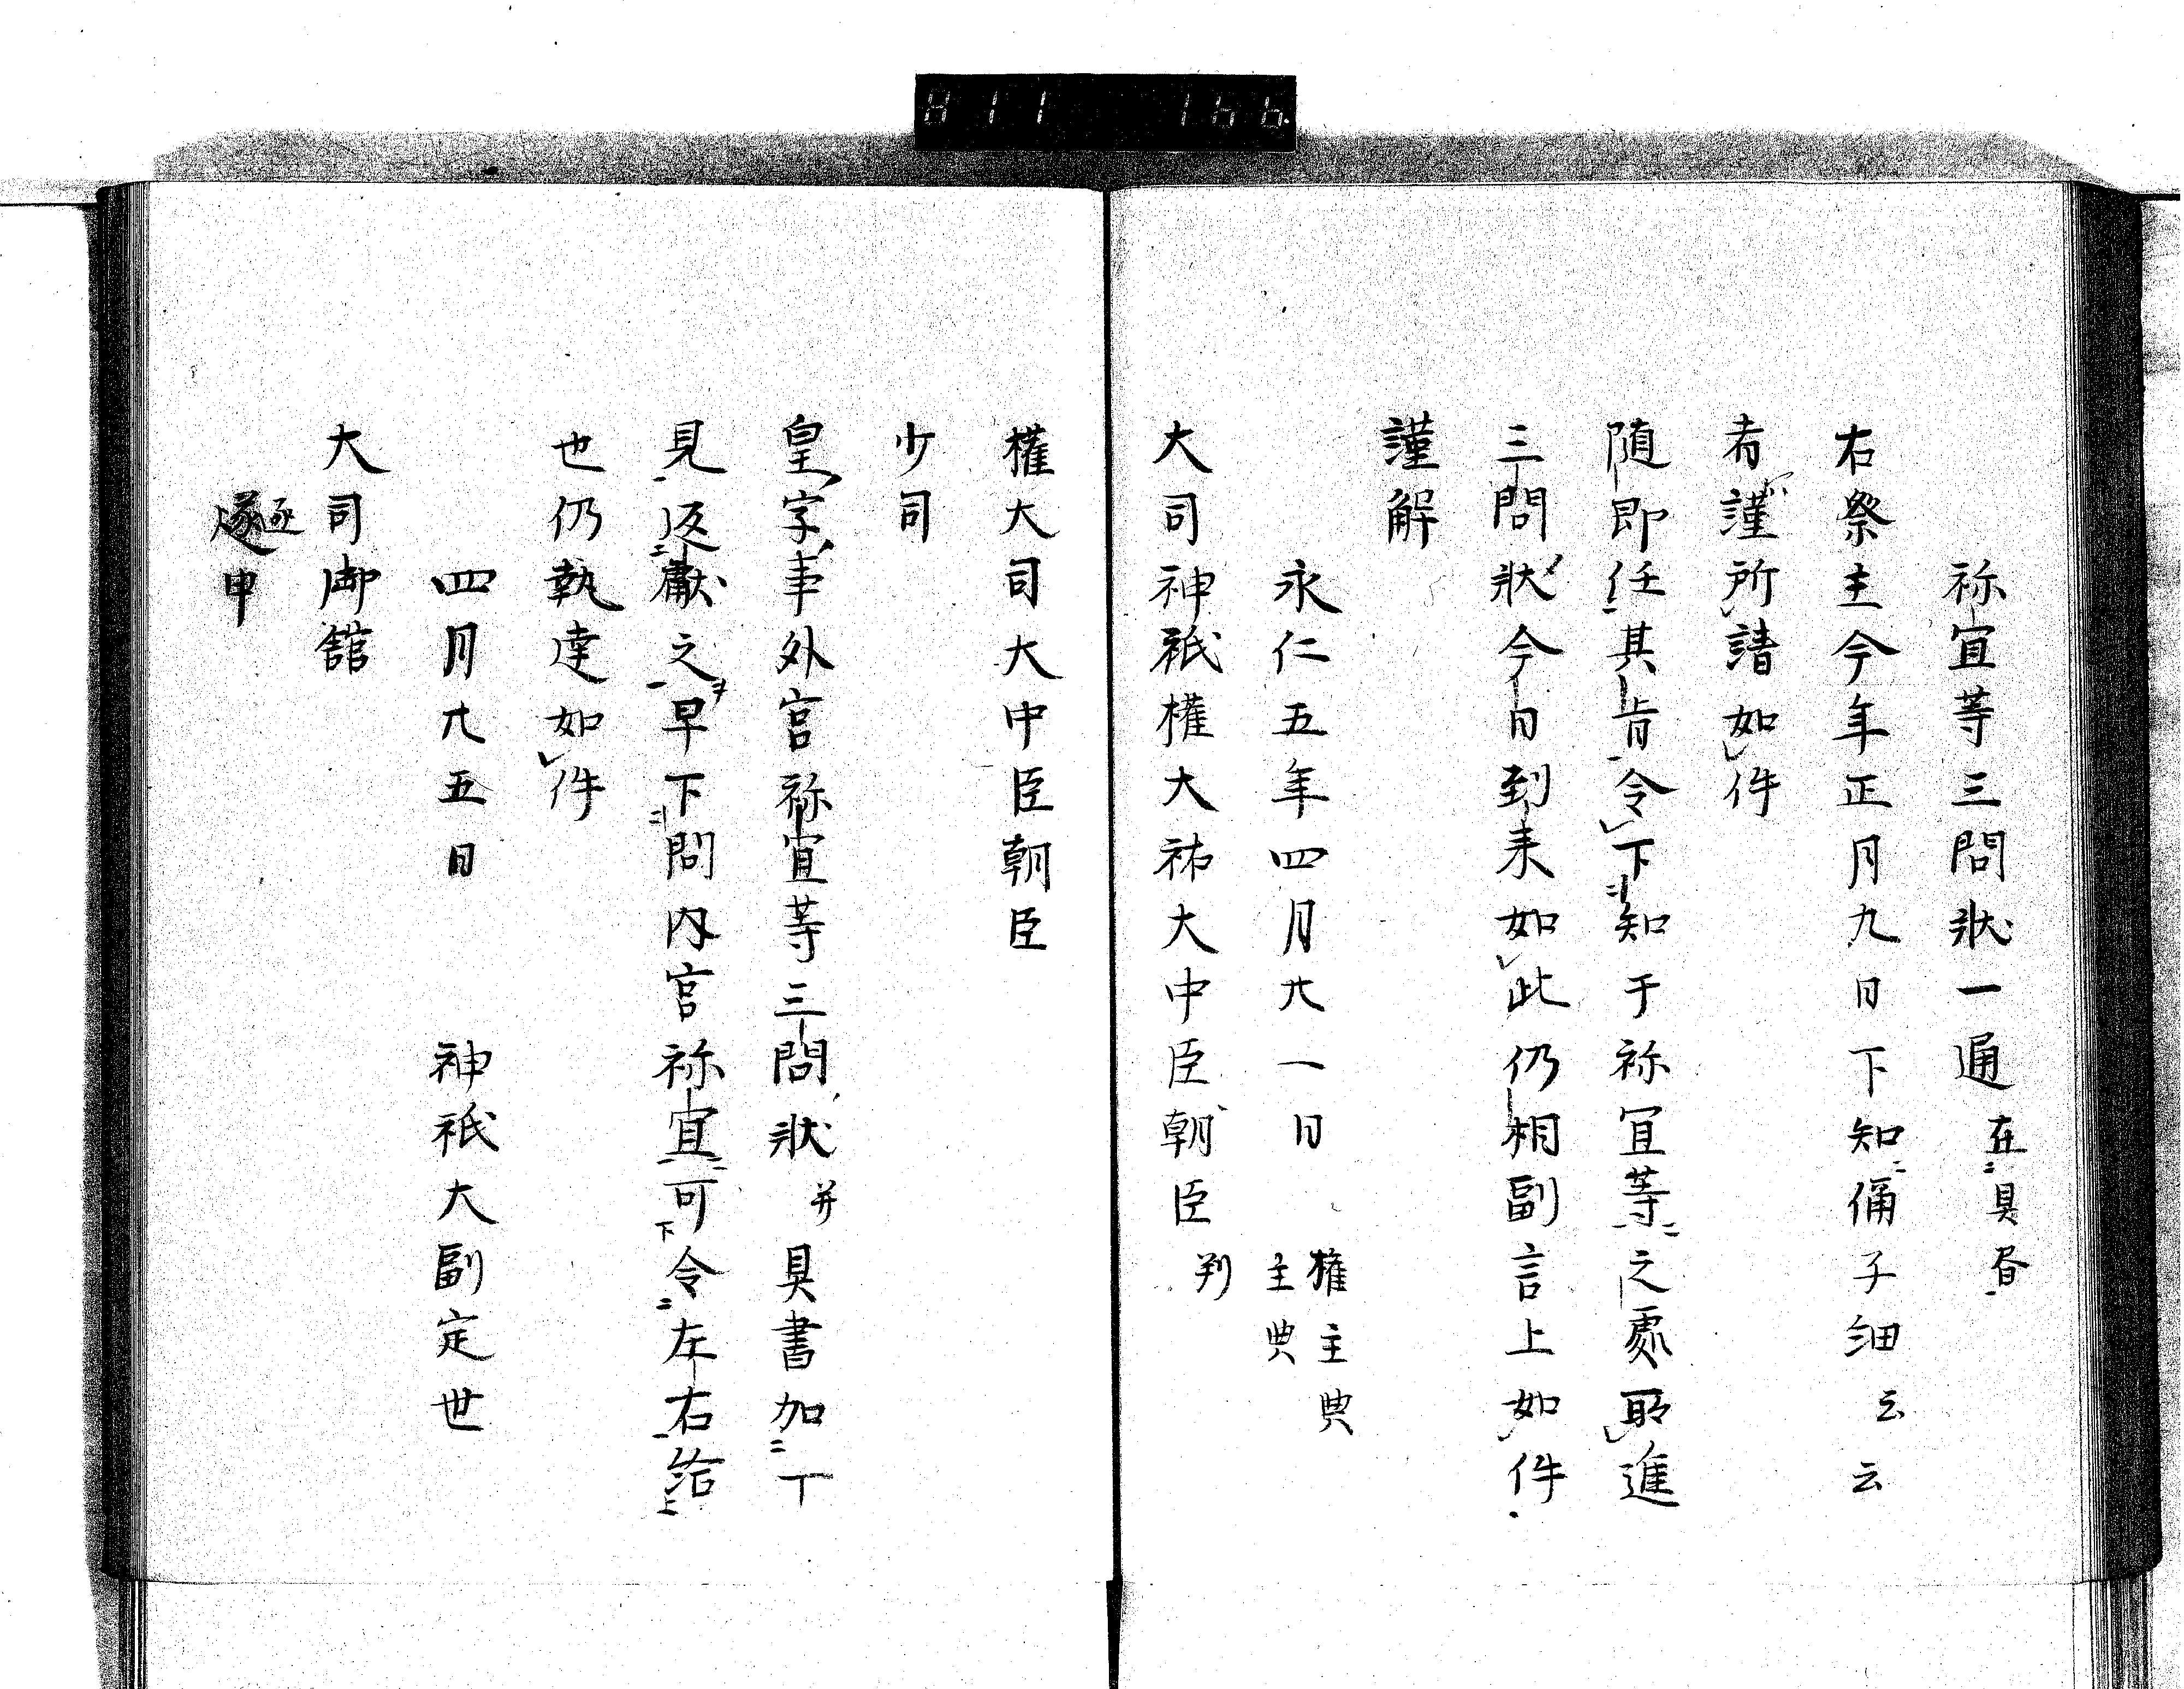 811 166
祢宜等三問狀一通 在具書
右祭主今年正月九日下知偁子細云云
者謹所請如件
随即任其旨令下知于祢宜等之處取進
三問狀今日到来如此仍相副言上如件
謹解
永仁五年四月廿一日 權主典
主典
大司神祇權大祐大中臣朝臣 判
權大司大中臣朝臣
少司
皇字事外宮祢宜等三問狀 并具書加一丁
見返獻之早下問内宮祢宜可令左右給
也仍執達如件
四月廿五日 神祇大副定世
大司御舘
逐申